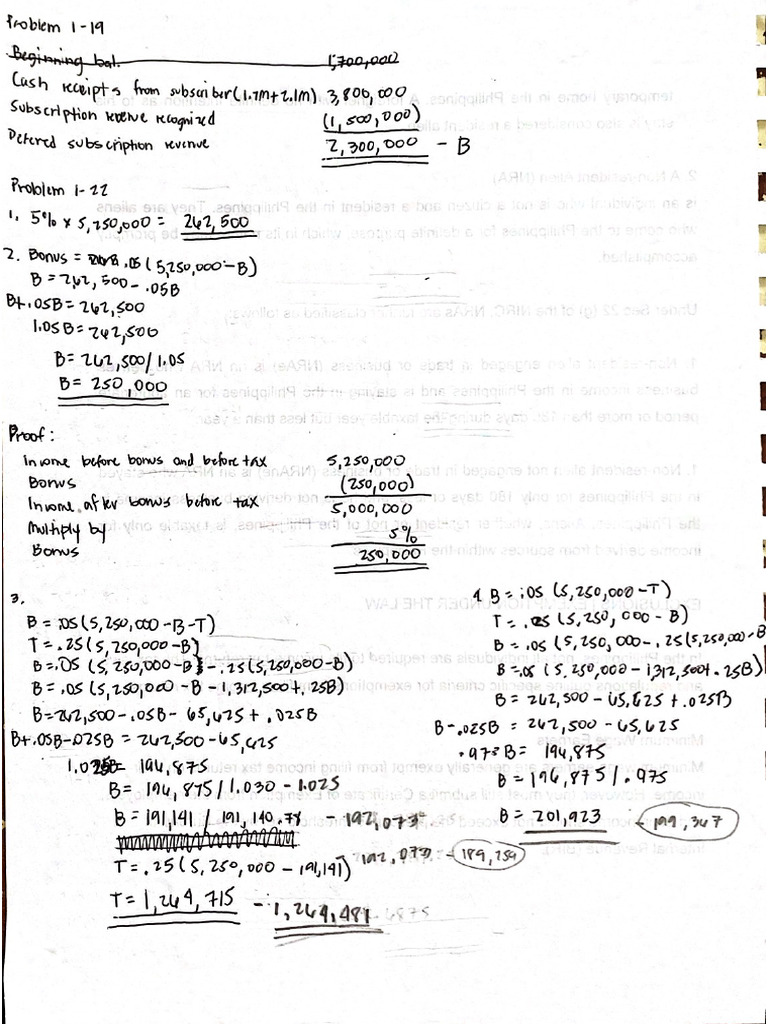 Problem 1-19
Beginning bal. 1,700,000
Cash receipts from subscriber (1.7m+2.1m) 3,800,000
Subscription revenue recognized (1,500,000)
Defered subscription revenue 2,300,000 - B
Problem 1-22
1. 5% x 5,250,000 = 262,500
2. Bonus = .05 (5,250,000 - B)
B = 262,500 - .05B
B+.05B = 262,500
1.05B = 262,500
B = 262,500/1.05
B = 250,000
Proof:
Income before bonus and before tax 5,250,000
Bonus (250,000)
Income after bonus before tax 5,000,000
Multiply by 5%
Bonus 250,000
3.
B = .05 (5,250,000 - B - T)
T = .25 (5,250,000 - B)
B = .05 (5,250,000 - B - .25 (5,250,000 - B)
B = .05 (5,250,000 - B - 1,312,500 + .25B)
B = 262,500 - .05B - 65,625 + .025B
B + .05B - .025B = 262,500 - 65,625
= 196,875
B = 196,875 / 1.030 - 1.025
B = 191,141 / 191,140.78 - 192,073
T = .25 (5,250,000 - 191,141) 192,073 - 189,259
T = 1,264,715 - 1,264,481
4. B = .05 (5,250,000 - T)
T = .25 (5,250,000 - B)
B = .05 (5,250,000 - .25 (5,250,000 - B
B = .05 (5,250,000 - 1,312,500 + .25B)
B = 262,500 - 65,625 + .025B
B - .025B = 262,500 - 65,625
.975 B = 196,875
B = 196,875 / .975
B = 201,923 - 199,367